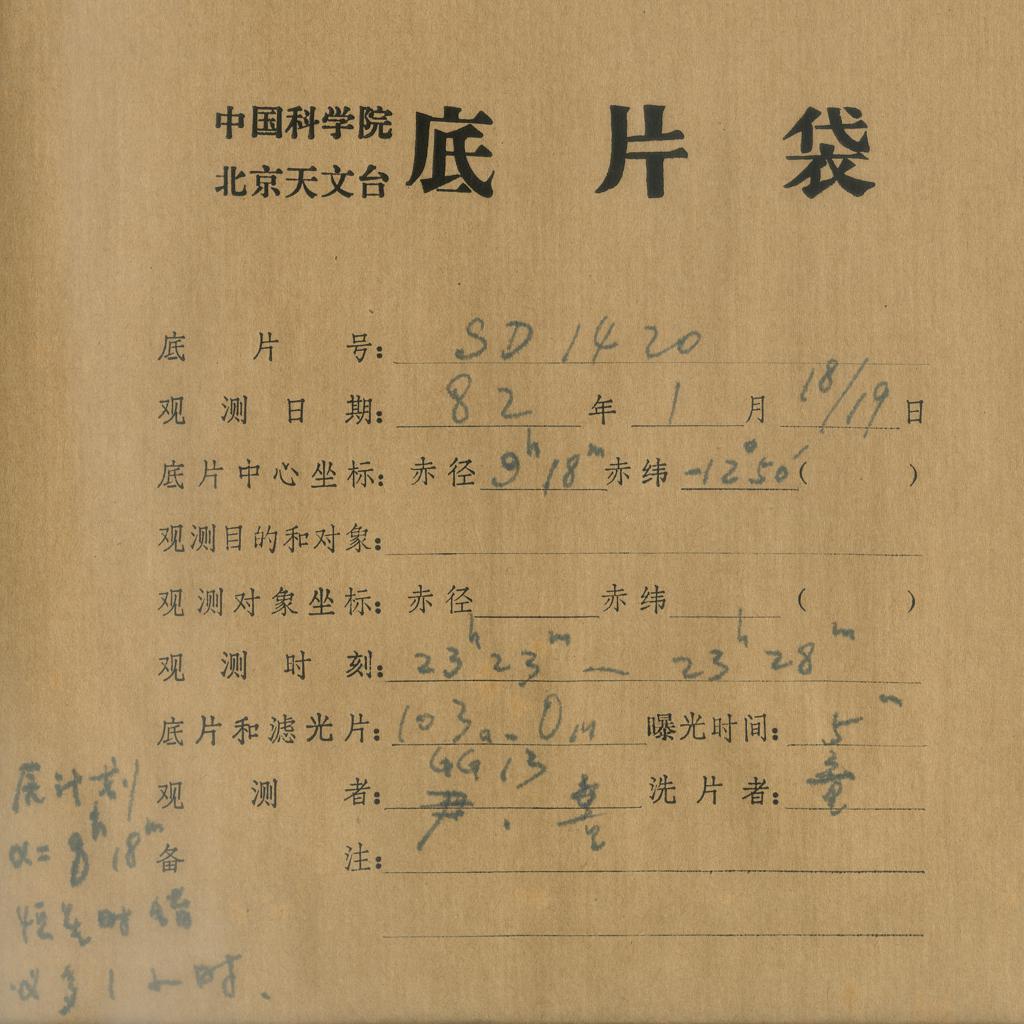 中国科学院
北京天文台 底片袋
底片号: SD 1420
观测日期: 82 年 1 月 18/19 日
底片中心坐标: 赤径 9h 18m 赤纬 -12°50′ ( )
观测目的和对象:
观测对象坐标: 赤径 赤纬 ( )
观测时刻: 23h 23m — 23h 28m
底片和滤光片: 103a-O 曝光时间: 5m
GG 13
观测者: 尹. 洗片者:
备注:
原计划
α= 8h 18m
恒星时错
多1小时.